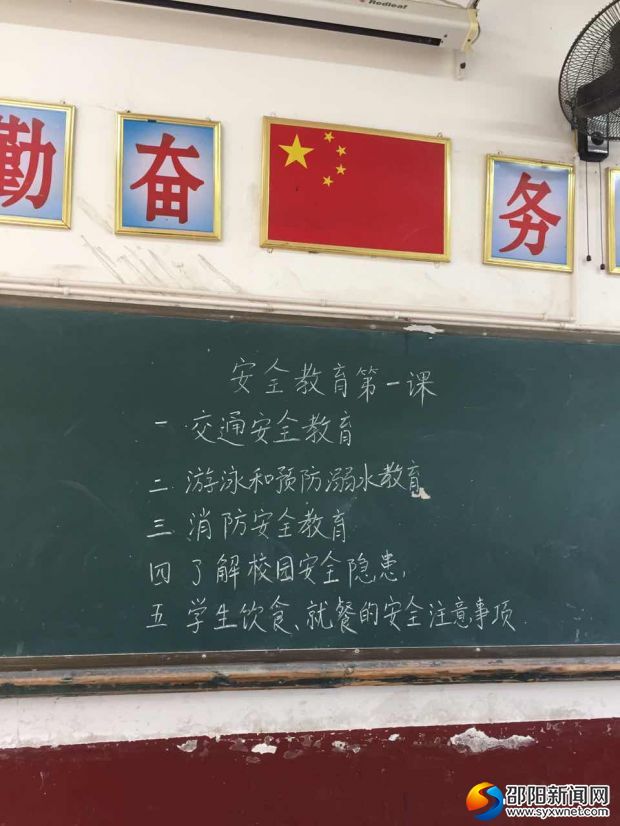 Redleaf
勤
奋
务
安全教育第一课
一 交通安全教育
二 游泳和预防溺水教育
三 消防安全教育
四 了解校园安全隐患.
五 学生饮食、就餐的安全注意事项
邵阳新闻网
www.syxwnet.com